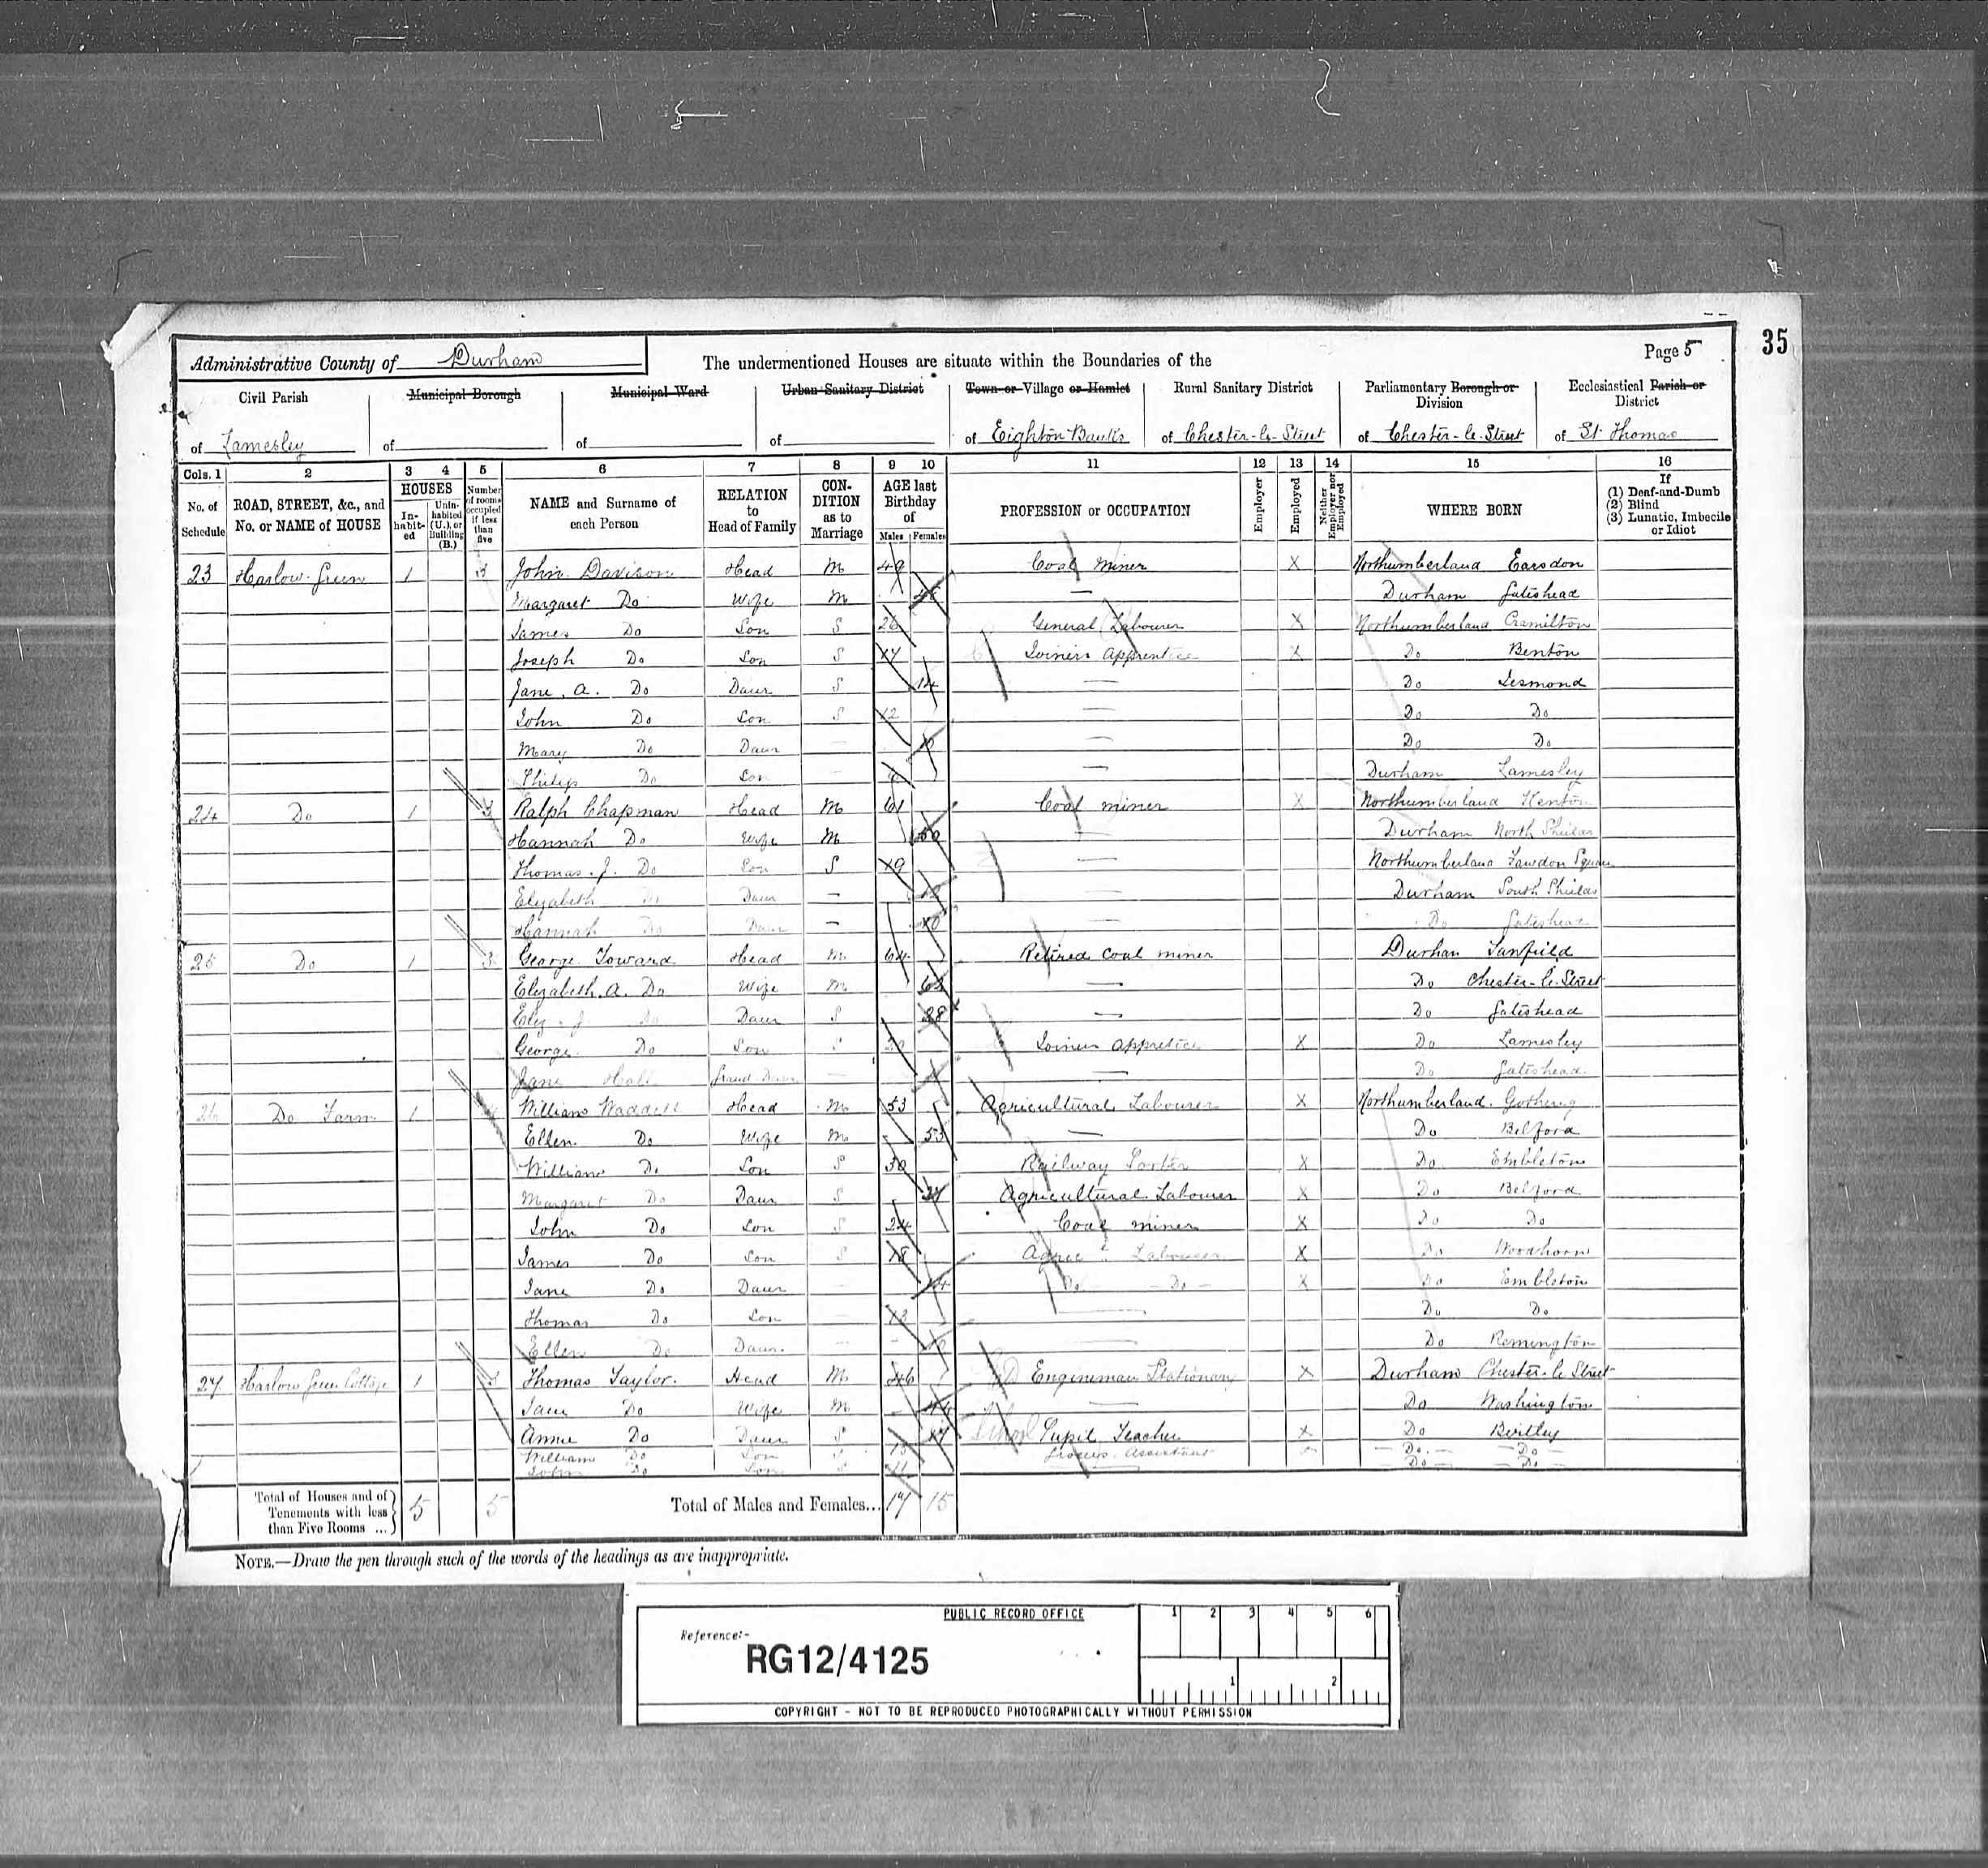 35
Administrative County of Durham The undermentioned Houses are situate within the Boundaries of the Page 5
Civil Parish Municipal Borough Municipal Ward Urban Sanitary District Town or Village or Hamlet Rural Sanitary District Parliamentary Borough or Division Ecclesiastical Parish or District
of Lamesley of of of of Eighton Banks of Chester-le-Street of Chester-le-Street of St Thomas
Cols. 1 2 3 4 5 6 7 8 9 10 11 12 13 14 15 16
No. of Schedule ROAD, STREET, &c., and No. or NAME of HOUSE HOUSES Inhabited Uninhabited (U.), or Building (B.) Number of rooms occupied if less than five NAME and Surname of each Person RELATION to Head of Family CONDITION as to Marriage AGE last Birthday of Males Females PROFESSION or OCCUPATION Employer Employed Neither Employer nor Employed WHERE BORN If (1) Deaf-and-Dumb (2) Blind (3) Lunatic, Imbecile or Idiot
23 Harlow Green 1 3 John Davison Head M 49 Coal miner X Northumberland Earsdon
Margaret Do Wife M — Durham Gateshead
James Do Son S 26 General Labourer X Northumberland Cramilton
Joseph Do Son S 17 Joiners Apprentice X Do Benton
Jane. A. Do Daur S 14 — Do Jesmond
John Do Son S 12 — Do Do
Mary Do Daur — — Do Do
Philip Do Son — — Durham Lamesley
24 Do 1 3 Ralph Chapman Head M 61 Coal miner X Northumberland Kenton
Hannah Do Wife M 50 — Durham North Shields
Thomas. J. Do Son S 19 — Northumberland Fawdon Square
Elizabeth Do Daur — — Durham South Shields
Hannah Do Daur — 10 — Do Gateshead
25 Do 1 3 George Toward Head M 64 Retired coal miner Durham Tanfield
Elizabeth. A. Do Wife M — Do Chester-le-Street
Eliz. J. Do Daur S 28 — Do Gateshead
George Do Son S 20 Joiner appretice X Do Lamesley
Jane Hall Grand Daur — — Do Gateshead
26 Do Farm 1 William Waddell Head M 53 Agricultural Labourer X Northumberland.
Ellen Do Wife M 53 — Do Belford
William Do Son S 30 Railway Porter X Do Embleton
Margaret Do Daur S Agricultural Labourer X Do Belford
John Do Son S 24 Coal miner X Do Do
James Do Son S 18 Agricl Labourer X Do Woodhorn
Jane Do Daur — 14 Do — Do — X Do Embleton
Thomas Do Son — 13 — Do Do
Ellen Do Daur. — — Do Remington
27 Harlow Green Cottage 1 Thomas Taylor. Head M 46 Engineman Stationary X Durham Chester-le Street
Jane Do Wife M — Do Washington
Annie Do Daur S 17 School Pupil Teacher X Do Birtley
William Do Son S Grocers Assistant X — Do — — Do —
John Do Son S 11 — — Do — — Do —
Total of Houses and of Tenements with less than Five Rooms ... 5 5 Total of Males and Females... 17 15
NOTE.—Draw the pen through such of the words of the headings as are inappropriate.
PUBLIC RECORD OFFICE 1 2 3 4 5 6
Reference:-
RG12/4125
1 2
COPYRIGHT - NOT TO BE REPRODUCED PHOTOGRAPHICALLY WITHOUT PERMISSION